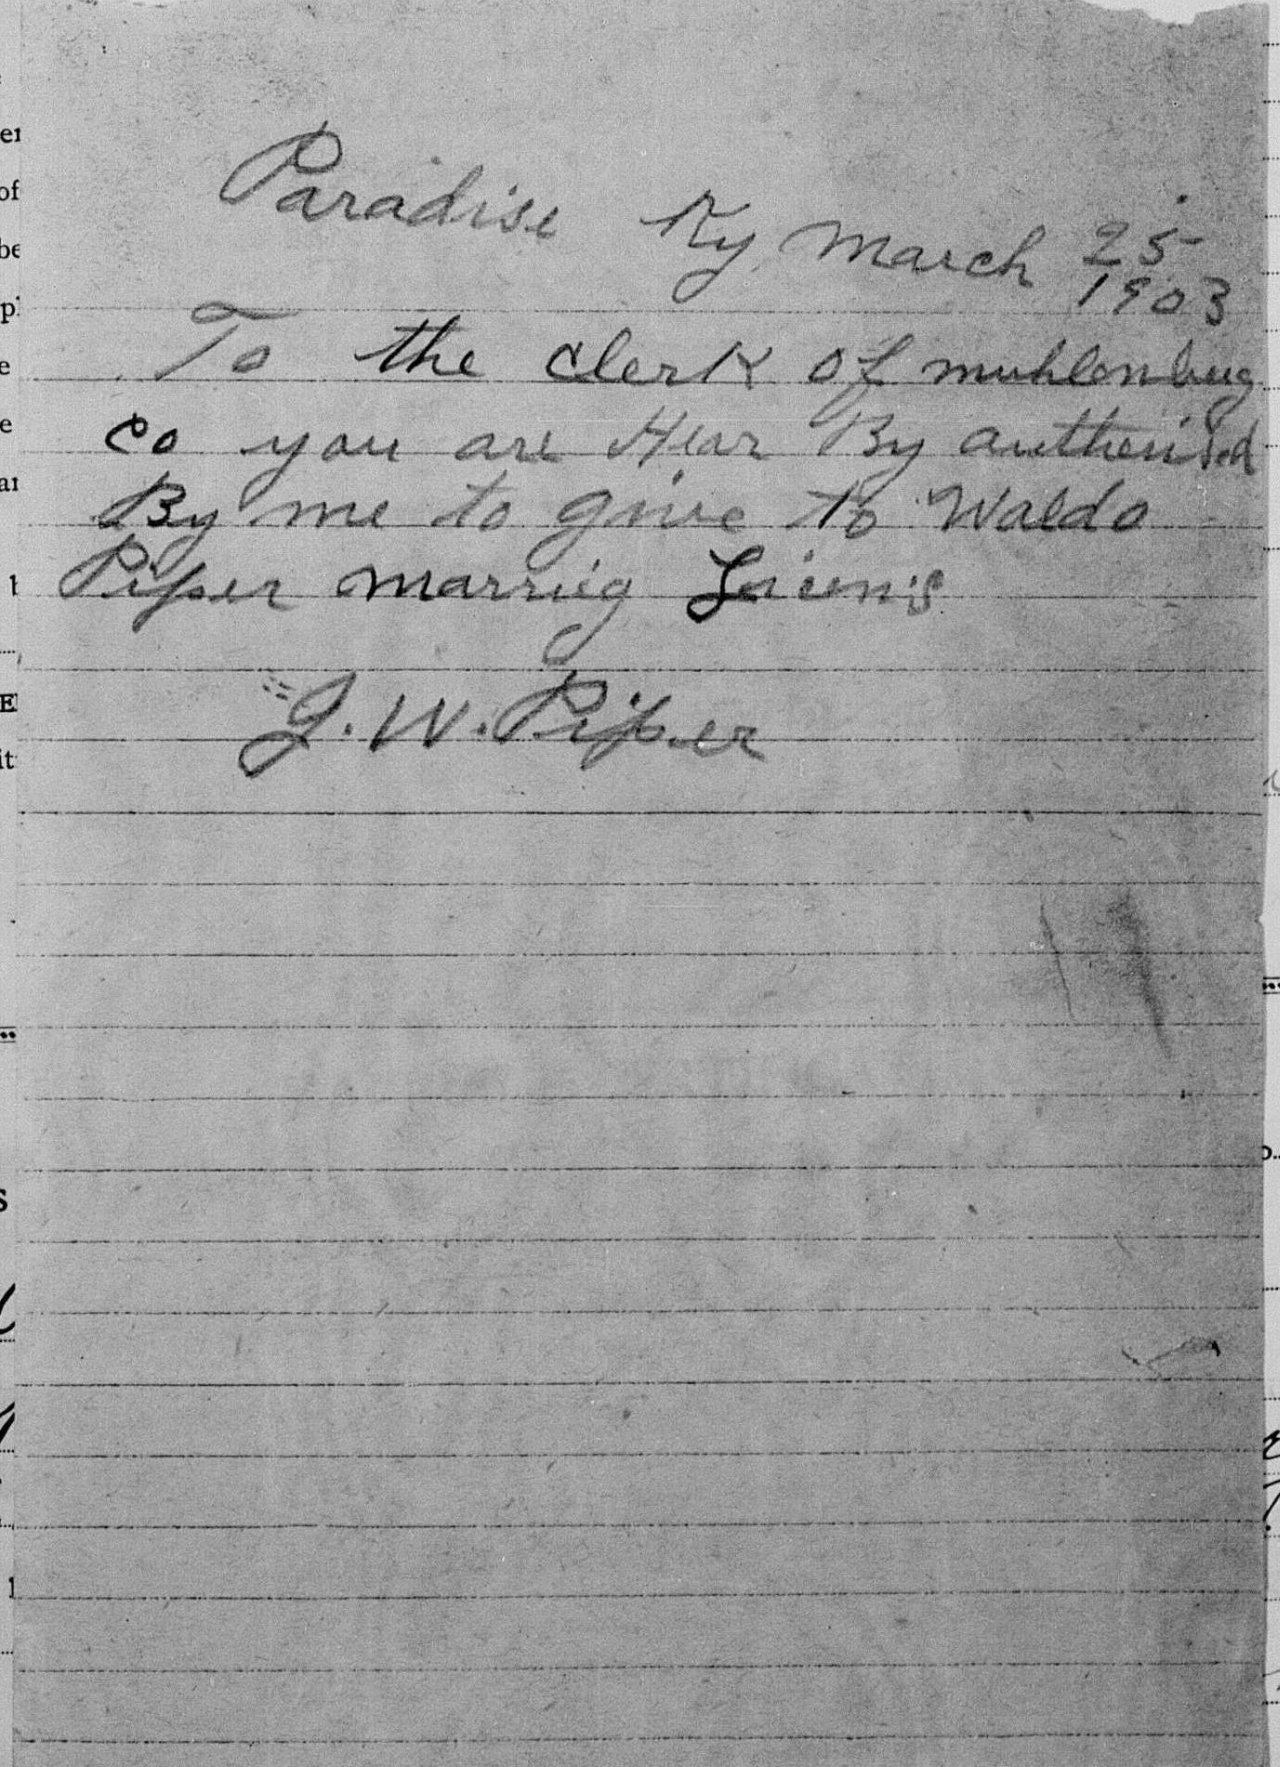 Paradise Ky March 25
1903
To the clerk of muhlenbug
co you are Hear By autherised
By me to give to Waldo
Piper marrieg Licens
J. W. Piper